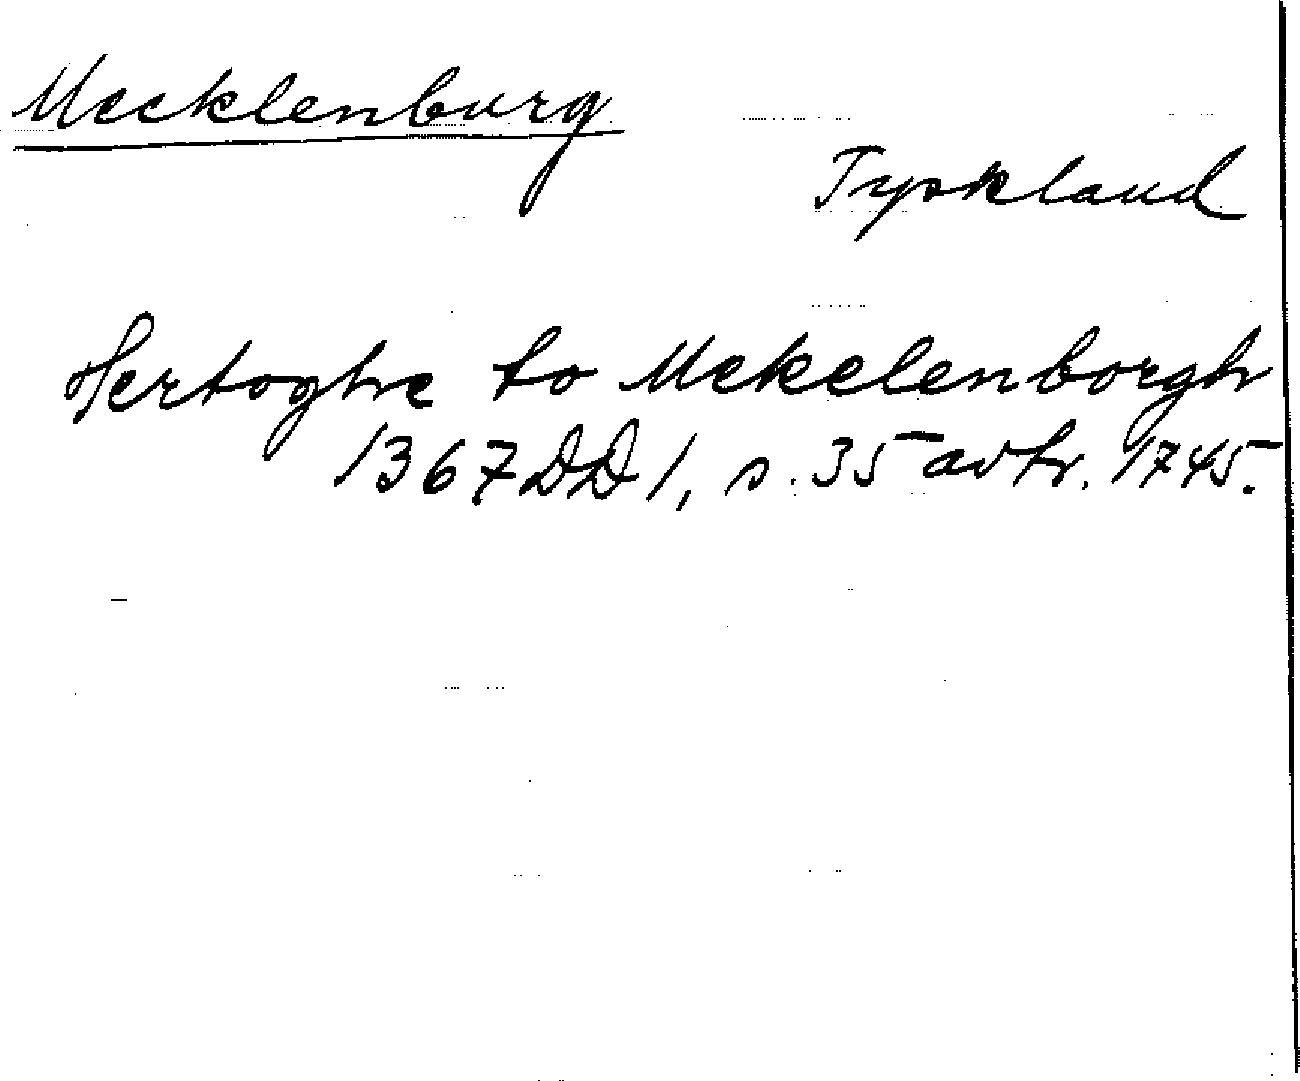 Mecklenburg
Tyskland
Hertoghe to Mekelenborgh
1367 DD 1, s. 35 avhr. 1745.